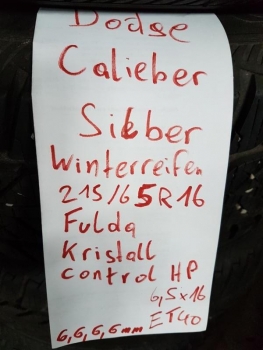 Dodse
Calieber
Silber
Winterreifen
215/65R16
Fulda
Kristall
control HP
6,5x16
ET40
6,6,6,6mm